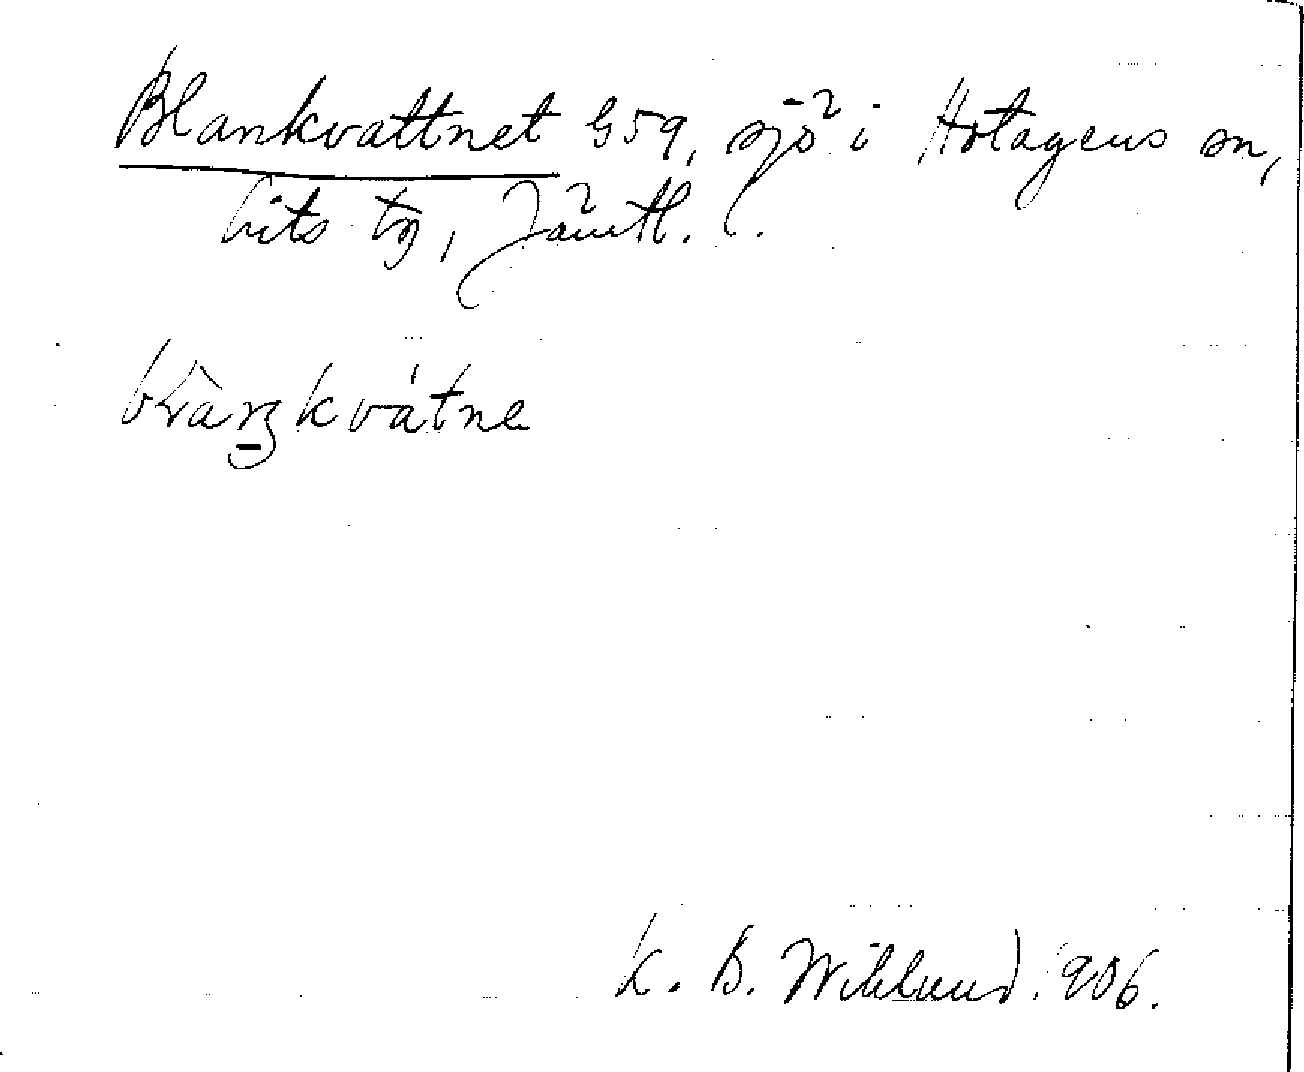 Blankvattnet G59, sjö i Hotagens sn,
Lits tg, Jämtl.
kvátne
K. B. Wiklund. 1906.